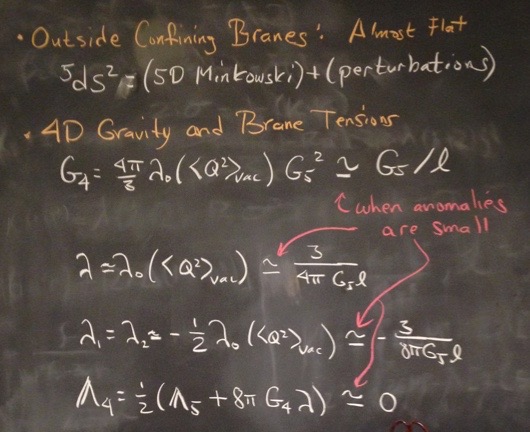 • Outside Confining Branes: Almost Flat
⁵ds² = (5D Minkowski) + (perturbations)
• 4D Gravity and Brane Tensions
G₄ = 4π/3 λ₀(⟨Q²⟩vac) G₅² ≃ G₅/l
↑ when anomalies
are small
λ ≈ λ₀(⟨Q²⟩vac) ≃ 3/(4πG₅l)
λ₁ = λ₂ ≈ -½λ₀(⟨Q²⟩vac) ≃ -3/(8πG₅l)
Λ₄ = ½(Λ₅ + 8πG₄λ) ≃ 0